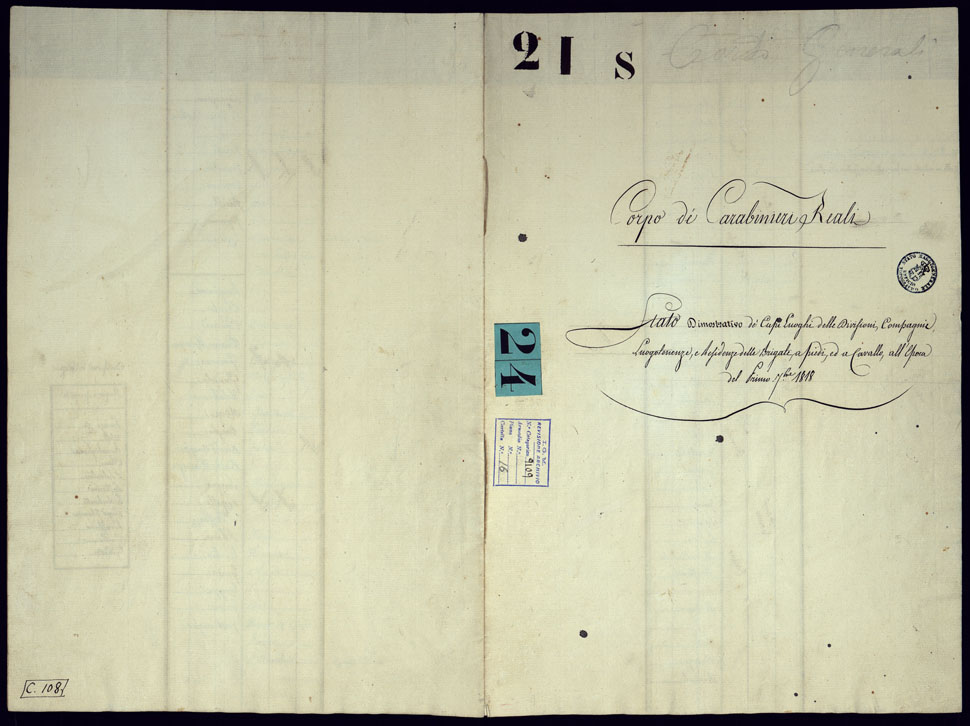 21 S
Carte Generali
Corpo dè Carabinieri Reali
Stato Dimostrativo dè Capi Luoghi delle Divisioni, Compagnie
Luogotenenze, e Residenze delle Brigate, a piedi, ed a Cavallo, all'Epoca
del Primo 7bre 1818
24
I. G. M.
REVISIONE ARCHIVIO
N.º Categorico 9109
Armadio N.º
Piano N.º
Cartella N.º 16
C. 108